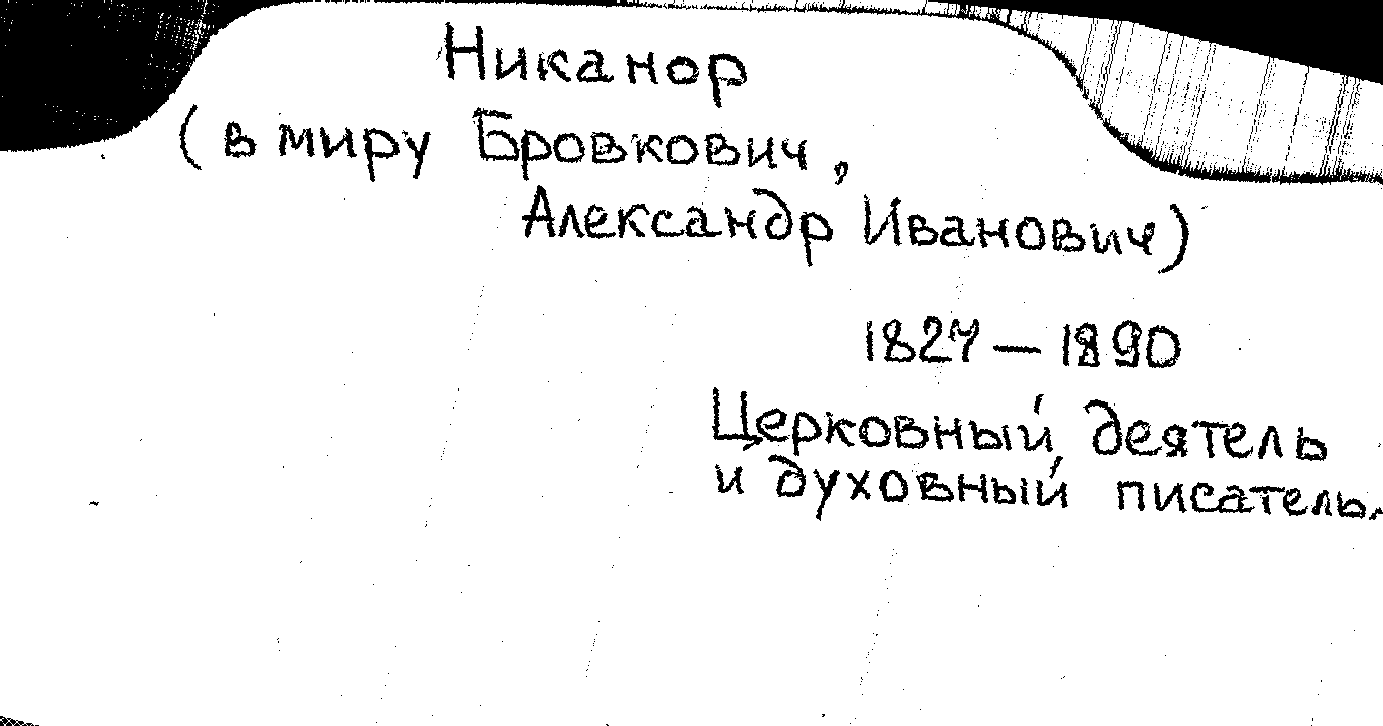 Никанор
(в миру Бровкович,
Александр Иванович)
1827 — 1890
Церковный деятель
и духовный писатель.